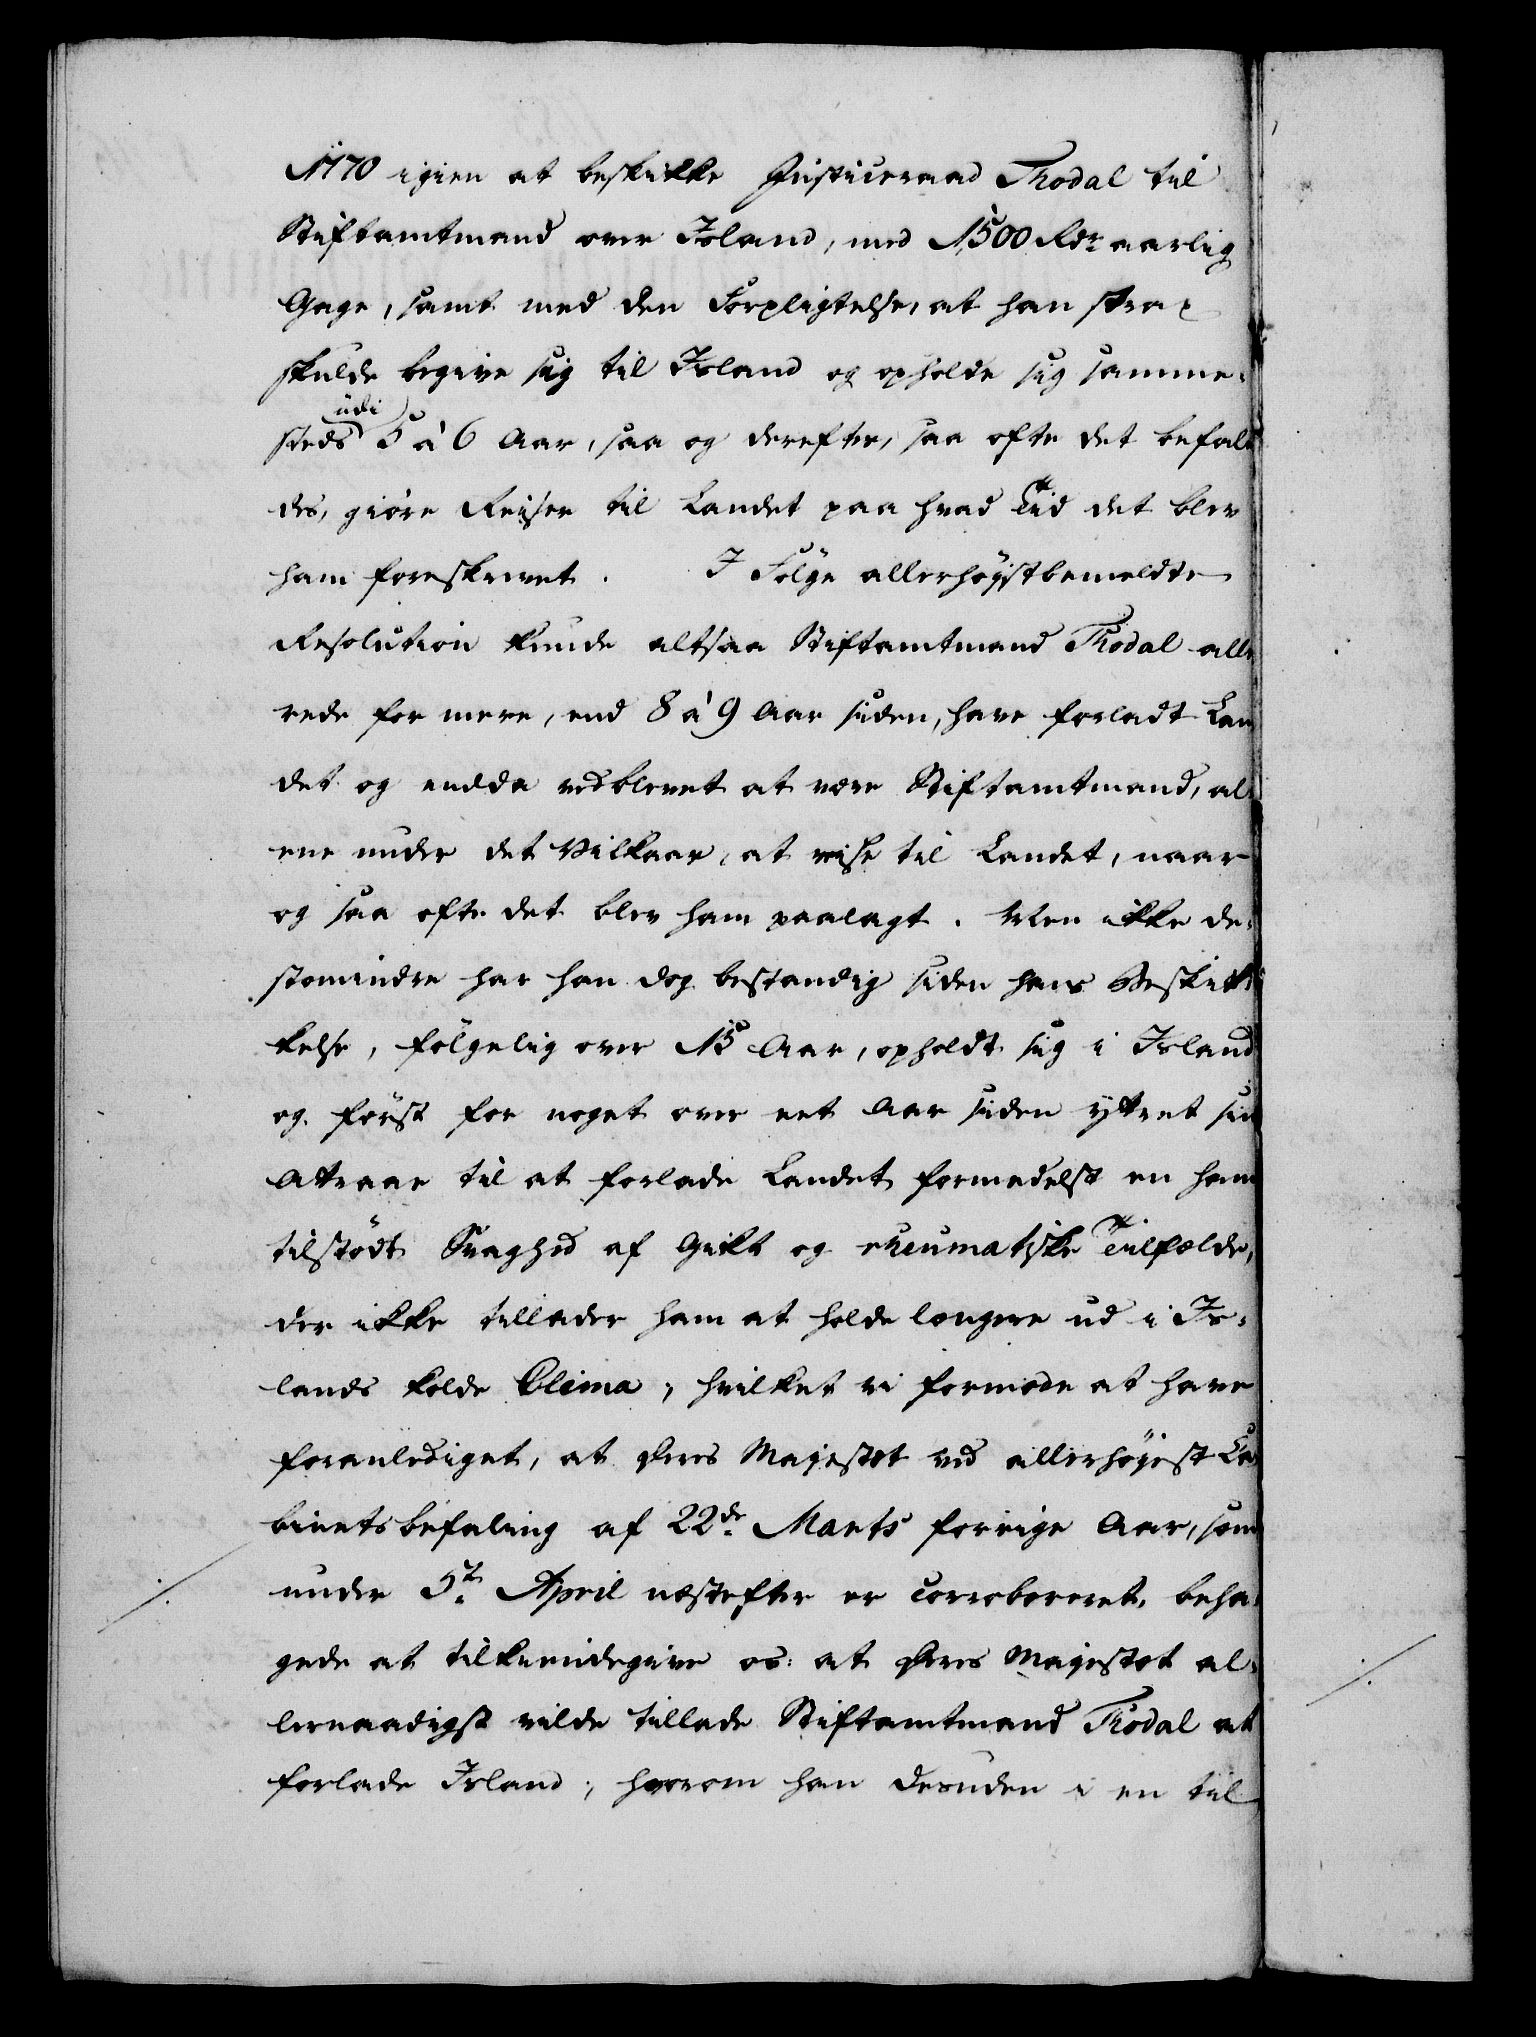 1770 igien at beskikke Justiceraad Thodal til
Stiftamtmand over Island, med 1500 Rdr aarlig
Gage, samt med den Forpligtelse, at han strax
skulde begive sig til Island og opholde sig samme-
steds udi 5 à 6 Aar, saa og derefter, saa ofte det befal-
des, giöre Reiser til Landet paa hvad Tid det blev
ham foreskrevet. I Fölge allerhöystbemeldte
Resolution kunde altsaa Stiftamtmand Thodal alle
rede for mere, end 8 à 9 Aar siden, have forladt Lan
det og endda vedblevet at være Stiftamtmand, al-
ene under det Vilkaar, at reise til Landet, naar
og saa ofte det blev ham paalagt. Men ikke de-
stomindre har han dog bestandig siden hans Beskik-
kelse, fölgelig over 15 Aar, opholdt sig i Island
og först for noget over eet Aar siden yttret sin
Attraae til at forlade Landet formedelst en ham
tilstödt Svaghed af Gikt og rheumatiske Tilfælde,
der ikke tillader ham at holde længere ud i Is-
lands kolde Clima; hvilket vi formode at have
foranlediget, at Deres Majestæt ved allerhöjest Ca
binetsbefaling af 22de Marts forrige Aar, som
under 5te April næstefter er corroboreret, beha-
gede at tilkiendegive os: at Deres Majestæt al-
lernaadigst vilde tillade Stiftamtmand Thodal at
forlade Island; hvorom han desuden i en til